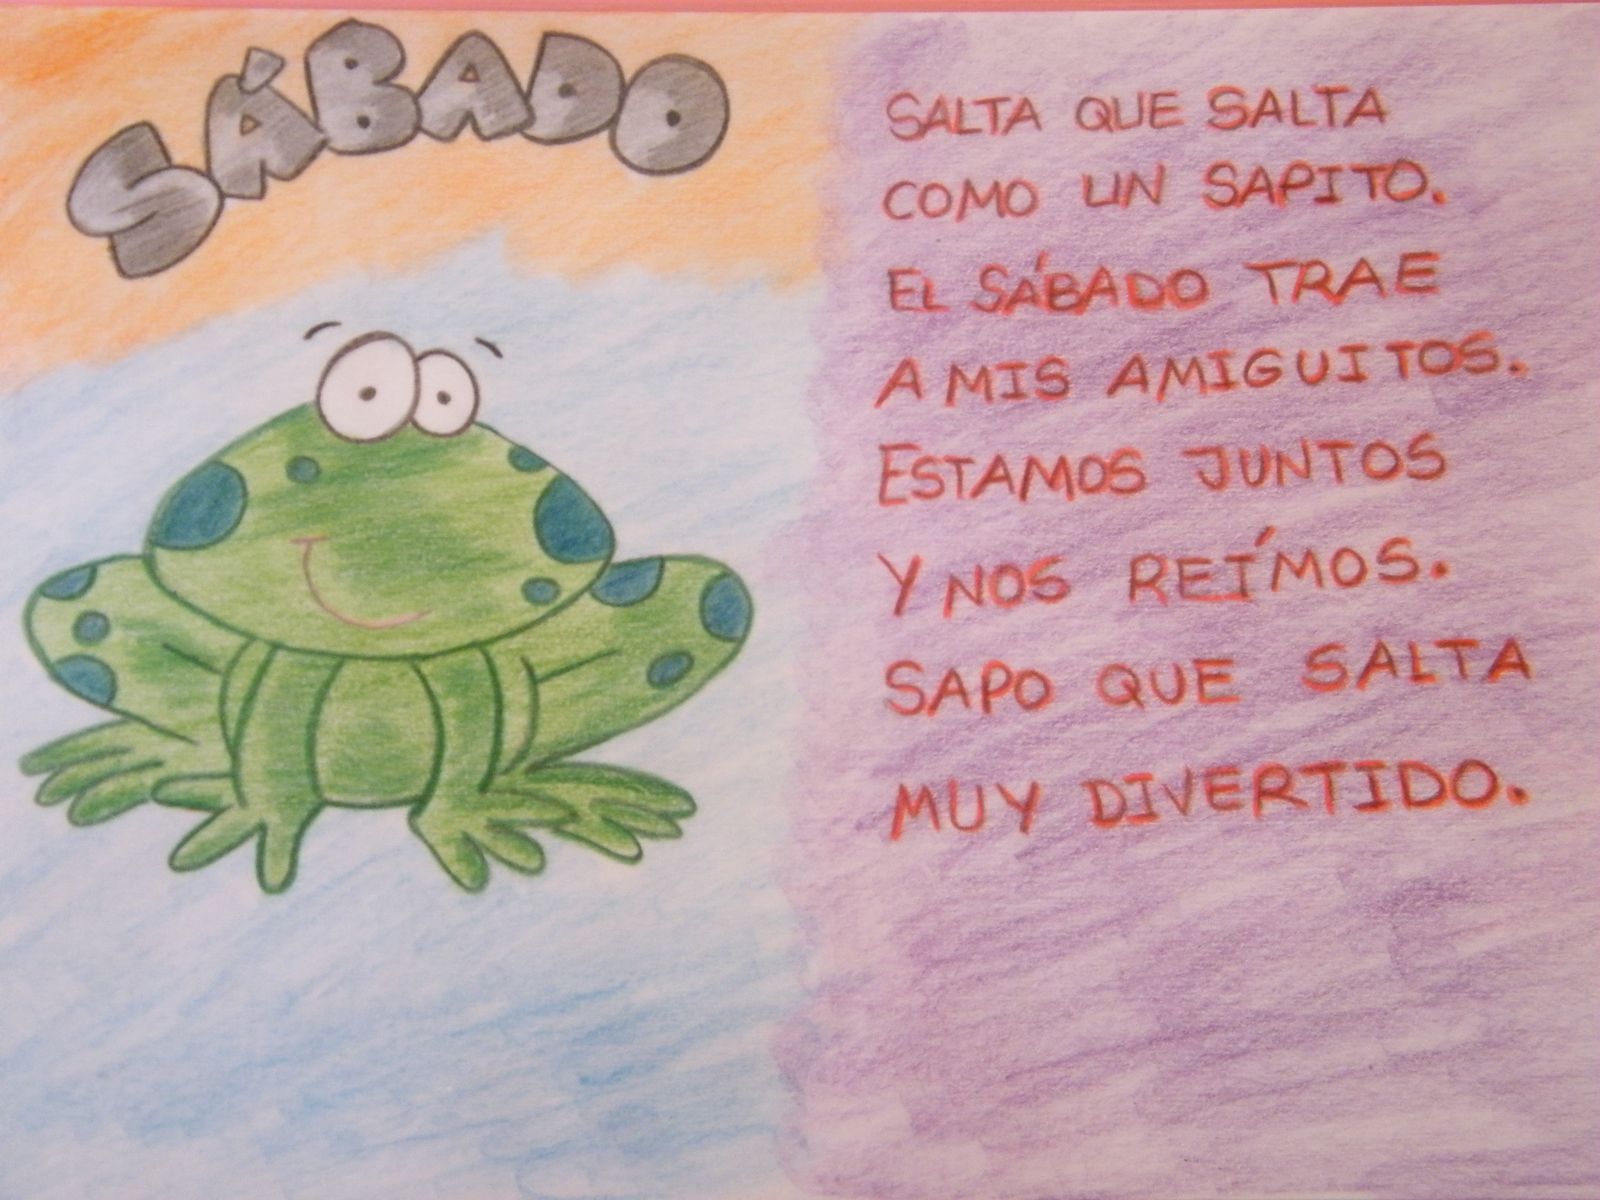 SÁBADO
SALTA QUE SALTA
COMO UN SAPITO.
EL SÁBADO TRAE
A MIS AMIGUITOS.
ESTAMOS JUNTOS
Y NOS REÍMOS.
SAPO QUE SALTA
MUY DIVERTIDO.